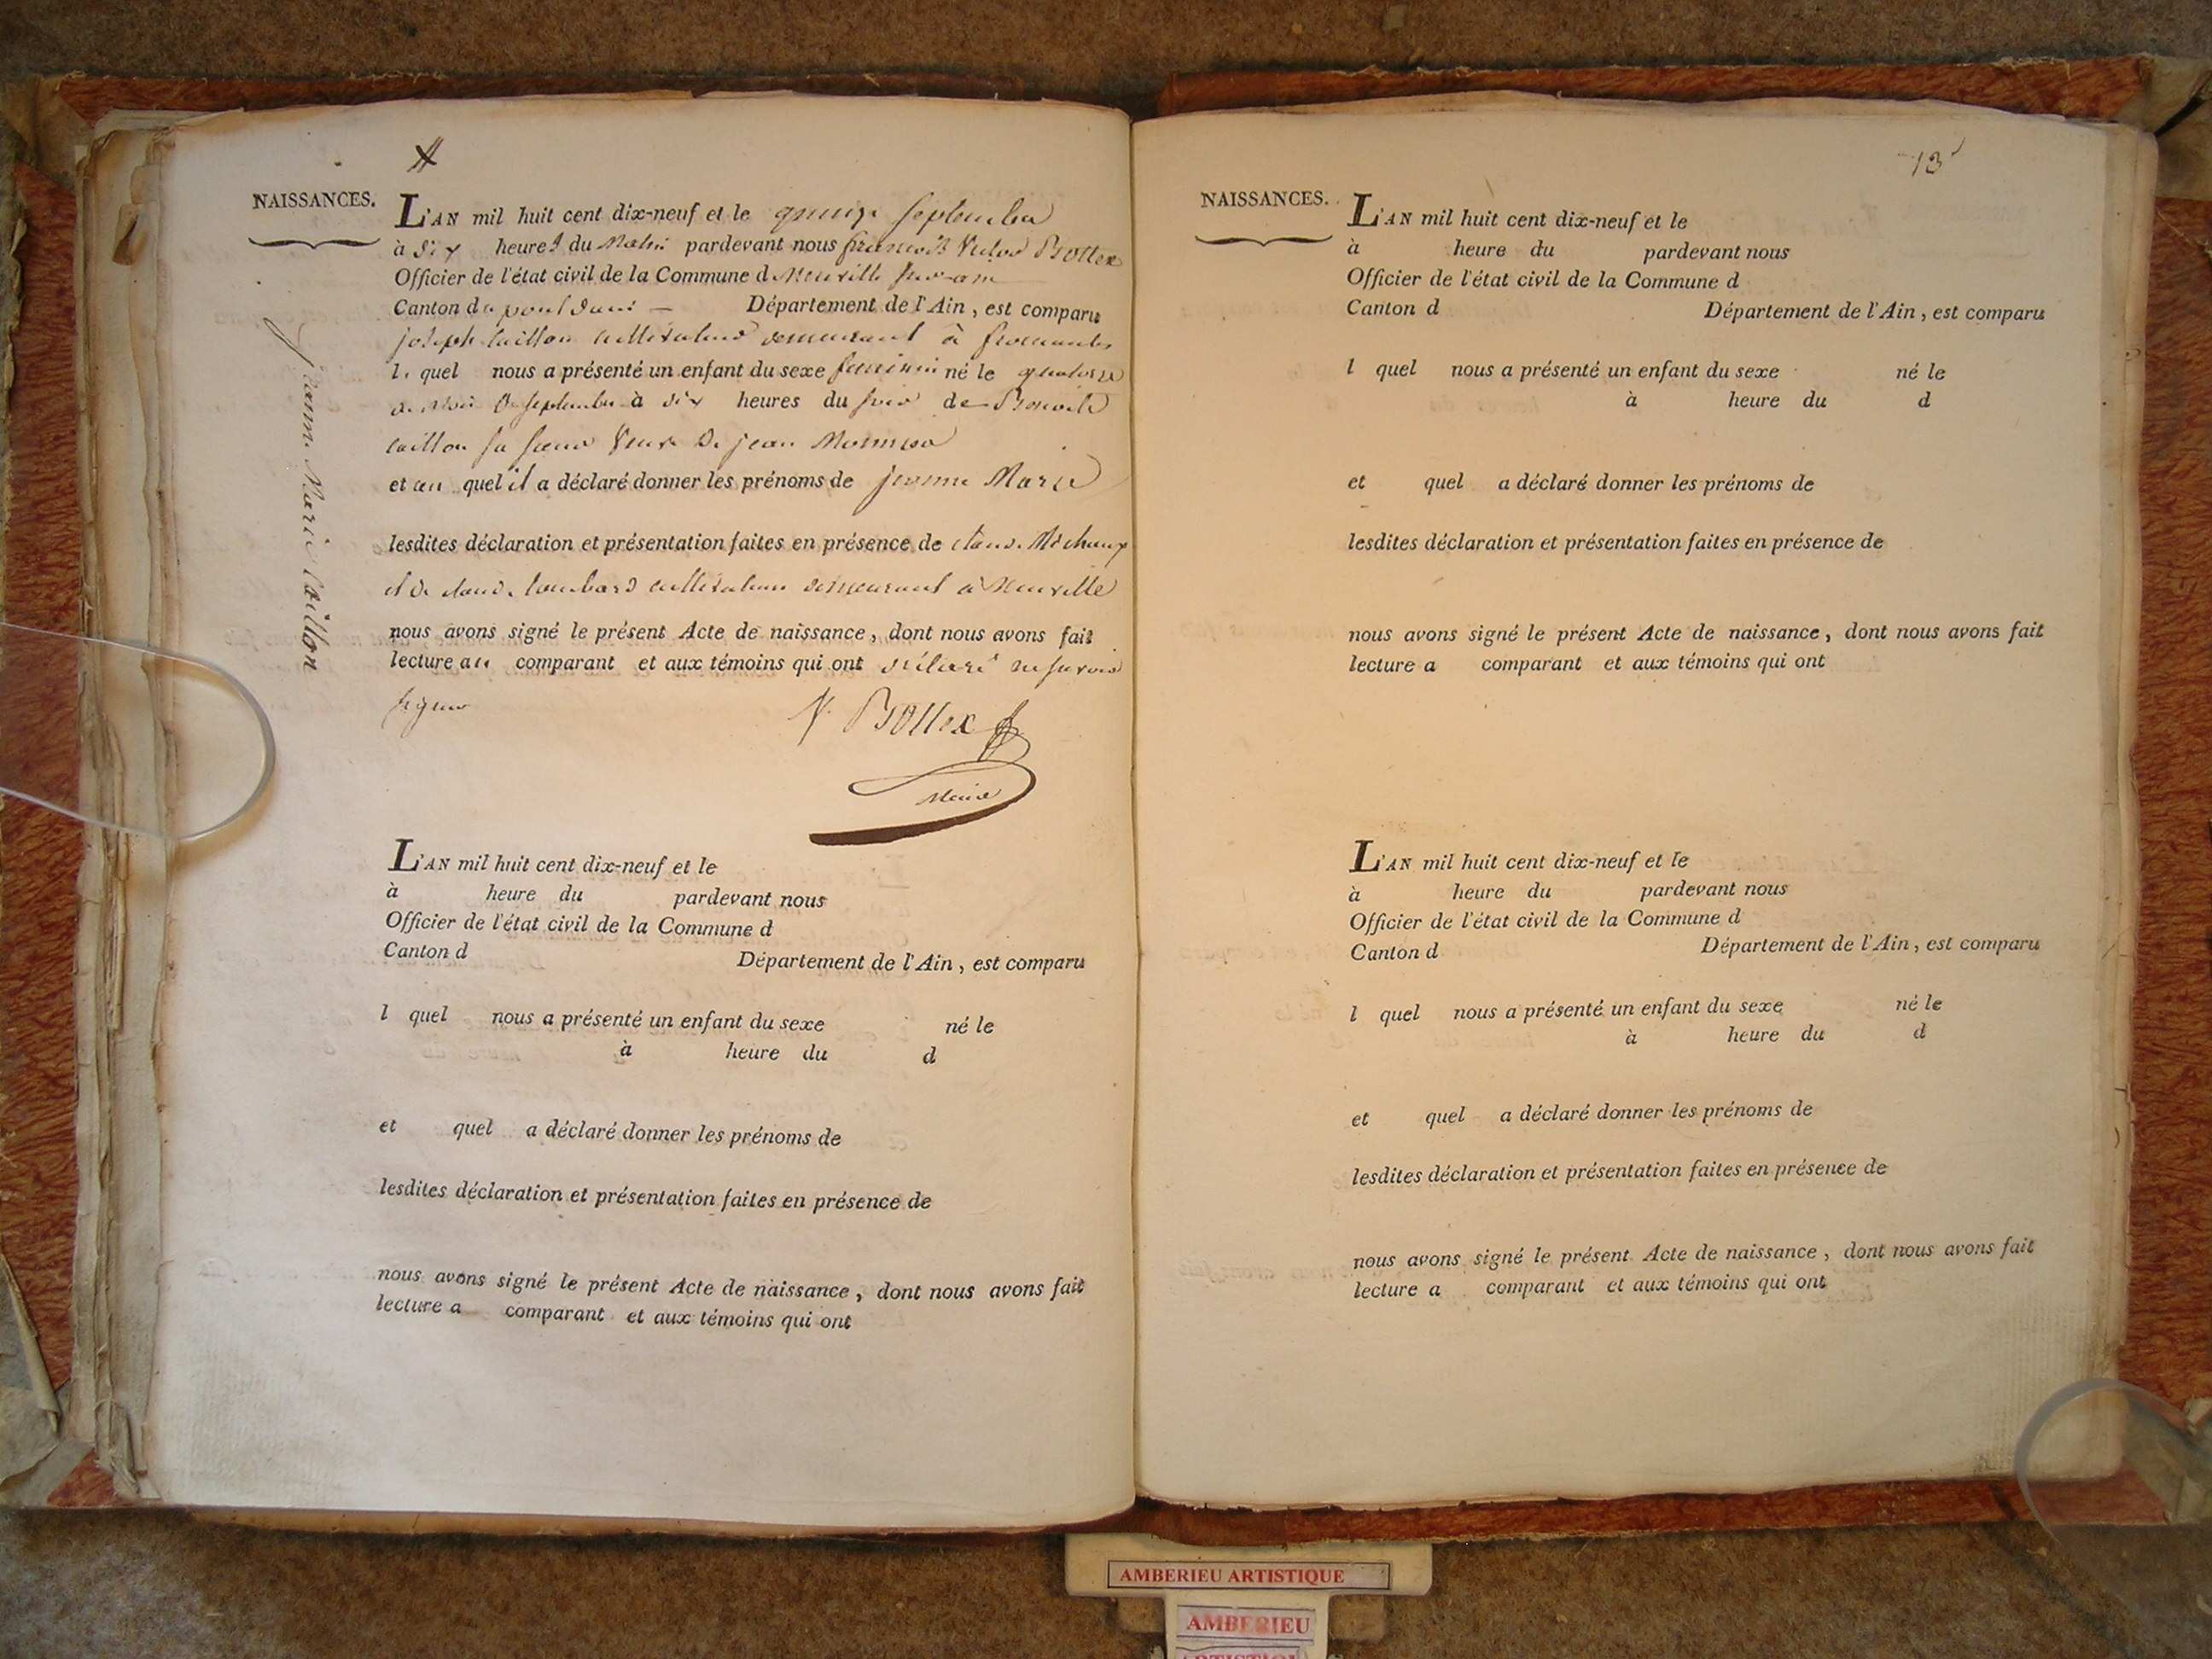 NAISSANCES.
L'AN mil huit cent dix-neuf et le quinze septembre
à six heures du matin pardevant nous françois Victor Bottex
Officier de l'état civil de la Commune d Neuville sur ain
Canton du pont dain — Département de l'Ain, est comparu
joseph caillon cultivateur demeurant à fromentes
le quel nous a présenté un enfant du sexe feminin né le quatorze
du mois de septembre à six heures du soir de
caillon sa sœur Veuve De jean
et au quel il a déclaré donner les prénoms de jeanne Marie
lesdites déclaration et présentation faites en présence de claude Michaux
et de claude cultivateurs demeurant à Neuville
nous avons signé le présent Acte de naissance, dont nous avons fait
lecture au comparant et aux témoins qui ont déclaré ne savoir
signer V. Bottex
Maire
jeanne Marie Caillon
L'AN mil huit cent dix-neuf et le
à heure du pardevant nous
Officier de l'état civil de la Commune d
Canton d Département de l'Ain, est comparu
l quel nous a présenté un enfant du sexe né le
à heure du d
et quel a déclaré donner les prénoms de
lesdites déclaration et présentation faites en présence de
nous avons signé le présent Acte de naissance, dont nous avons fait
lecture a comparant et aux témoins qui ont
13
NAISSANCES.
L'AN mil huit cent dix-neuf et le
à heure du pardevant nous
Officier de l'état civil de la Commune d
Canton d Département de l'Ain, est comparu
l quel nous a présenté un enfant du sexe né le
à heure du d
et quel a déclaré donner les prénoms de
lesdites déclaration et présentation faites en présence de
nous avons signé le présent Acte de naissance, dont nous avons fait
lecture a comparant et aux témoins qui ont
L'AN mil huit cent dix-neuf et le
à heure du pardevant nous
Officier de l'état civil de la Commune d
Canton d Département de l'Ain, est comparu
l quel nous a présenté un enfant du sexe né le
à heure du d
et quel a déclaré donner les prénoms de
lesdites déclaration et présentation faites en présence de
nous avons signé le présent Acte de naissance, dont nous avons fait
lecture a comparant et aux témoins qui ont
AMBERIEU ARTISTIQUE
AMBERIEU
ARTISTIQU